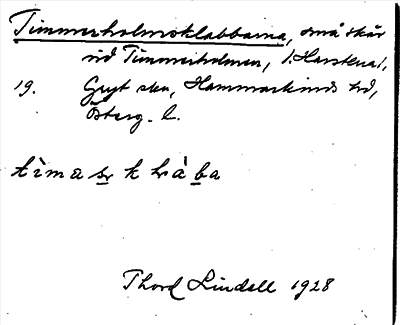 Timmerholmsklabbarna, små skär
vid Timmerholmen, i Harstena,
19. Gryt skn, Hammarkinds hd,
Österg. l.
Thord Lindell 1928